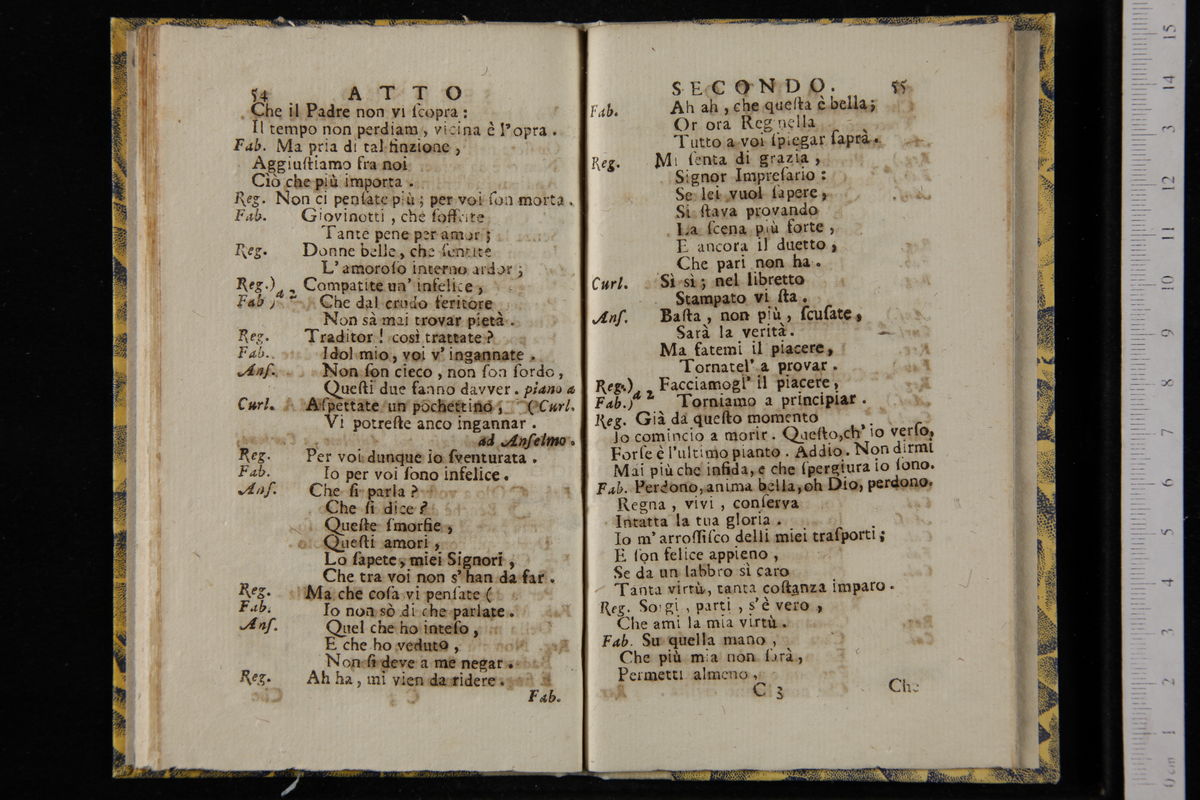 54 ATTO
Che il Padre non vi ſcopra :
Il tempo non perdiam , vicina è l'opra .
Fab. Ma pria di tal finzione ,
Aggiuſtiamo fra noi
Ciò che più importa .
Reg. Non ci penſate più ; per voi ſon morta .
Fab. Giovinotti , che ſoffrite
Tante pene per amor ;
Reg. Donne belle , che ſentite
L' amoroſo interno ardor ;
Reg.) a 2 Compatite un' infelice ,
Fab.) Che dal crudo feritore
Non sà mai trovar pietà .
Reg. Traditor ! così trattate ?
Fab. Idol mio , voi v' ingannate .
Anſ. Non ſon cieco , non ſon ſordo ,
Queſti due fanno davver . piano a
Curl. Aſpettate un pochettino ; (Curl.
Vi potreſte anco ingannar .
ad Anſelmo .
Reg. Per voi dunque io ſventurata .
Fab. Io per voi ſono infelice .
Anſ. Che ſi parla ?
Che ſi dice ?
Queſte ſmorfie ,
Queſti amori ,
Lo ſapete , miei Signori ,
Che tra voi non s' han da far .
Reg. Ma che coſa vi penſate (
Fab. Io non sò di che parlate .
Anſ. Quel che ho inteſo ,
E che ho veduto ,
Non ſi deve a me negar .
Reg. Ah ha , mi vien da ridere .
Fab.
SECONDO. 55
Fab. Ah ah , che queſta è bella ;
Or ora Reginella
Tutto a voi ſpiegar ſaprà .
Reg. Mi ſenta di grazia ,
Signor Impreſario :
Se lei vuol ſapere ,
Si ſtava provando
La ſcena più forte ,
E ancora il duetto ,
Che pari non ha .
Curl. Si sì ; nel libretto
Stampato vi ſta .
Anſ. Baſta , non più , ſcuſate ,
Sarà la verità .
Ma fatemi il piacere ,
Tornatel' a provar .
Reg.) a 2 Facciamogl' il piacere ,
Fab.) Torniamo a principiar .
Reg. Già da queſto momento
Io comincio a morir . Queſto, ch' io verſo,
Forſe è l'ultimo pianto . Addio . Non dirmi
Mai più che infida, e che ſpergiura io ſono.
Fab. Perdono, anima bella, oh Dio, perdono.
Regna , vivi , conſerva
Intatta la tua gloria .
Io m' arroſſiſco delli miei traſporti ;
E ſon felice appieno ,
Se da un labbro sì caro
Tanta virtù, tanta coſtanza imparo .
Reg. Sorgi , parti , s'è vero ,
Che ami la mia virtù .
Fab. Su quella mano ,
Che più mia non ſarà ,
Permetti almeno ,
C 3 Che
0 cm 1 2 3 4 5 6 7 8 9 10 11 12 13 14 15